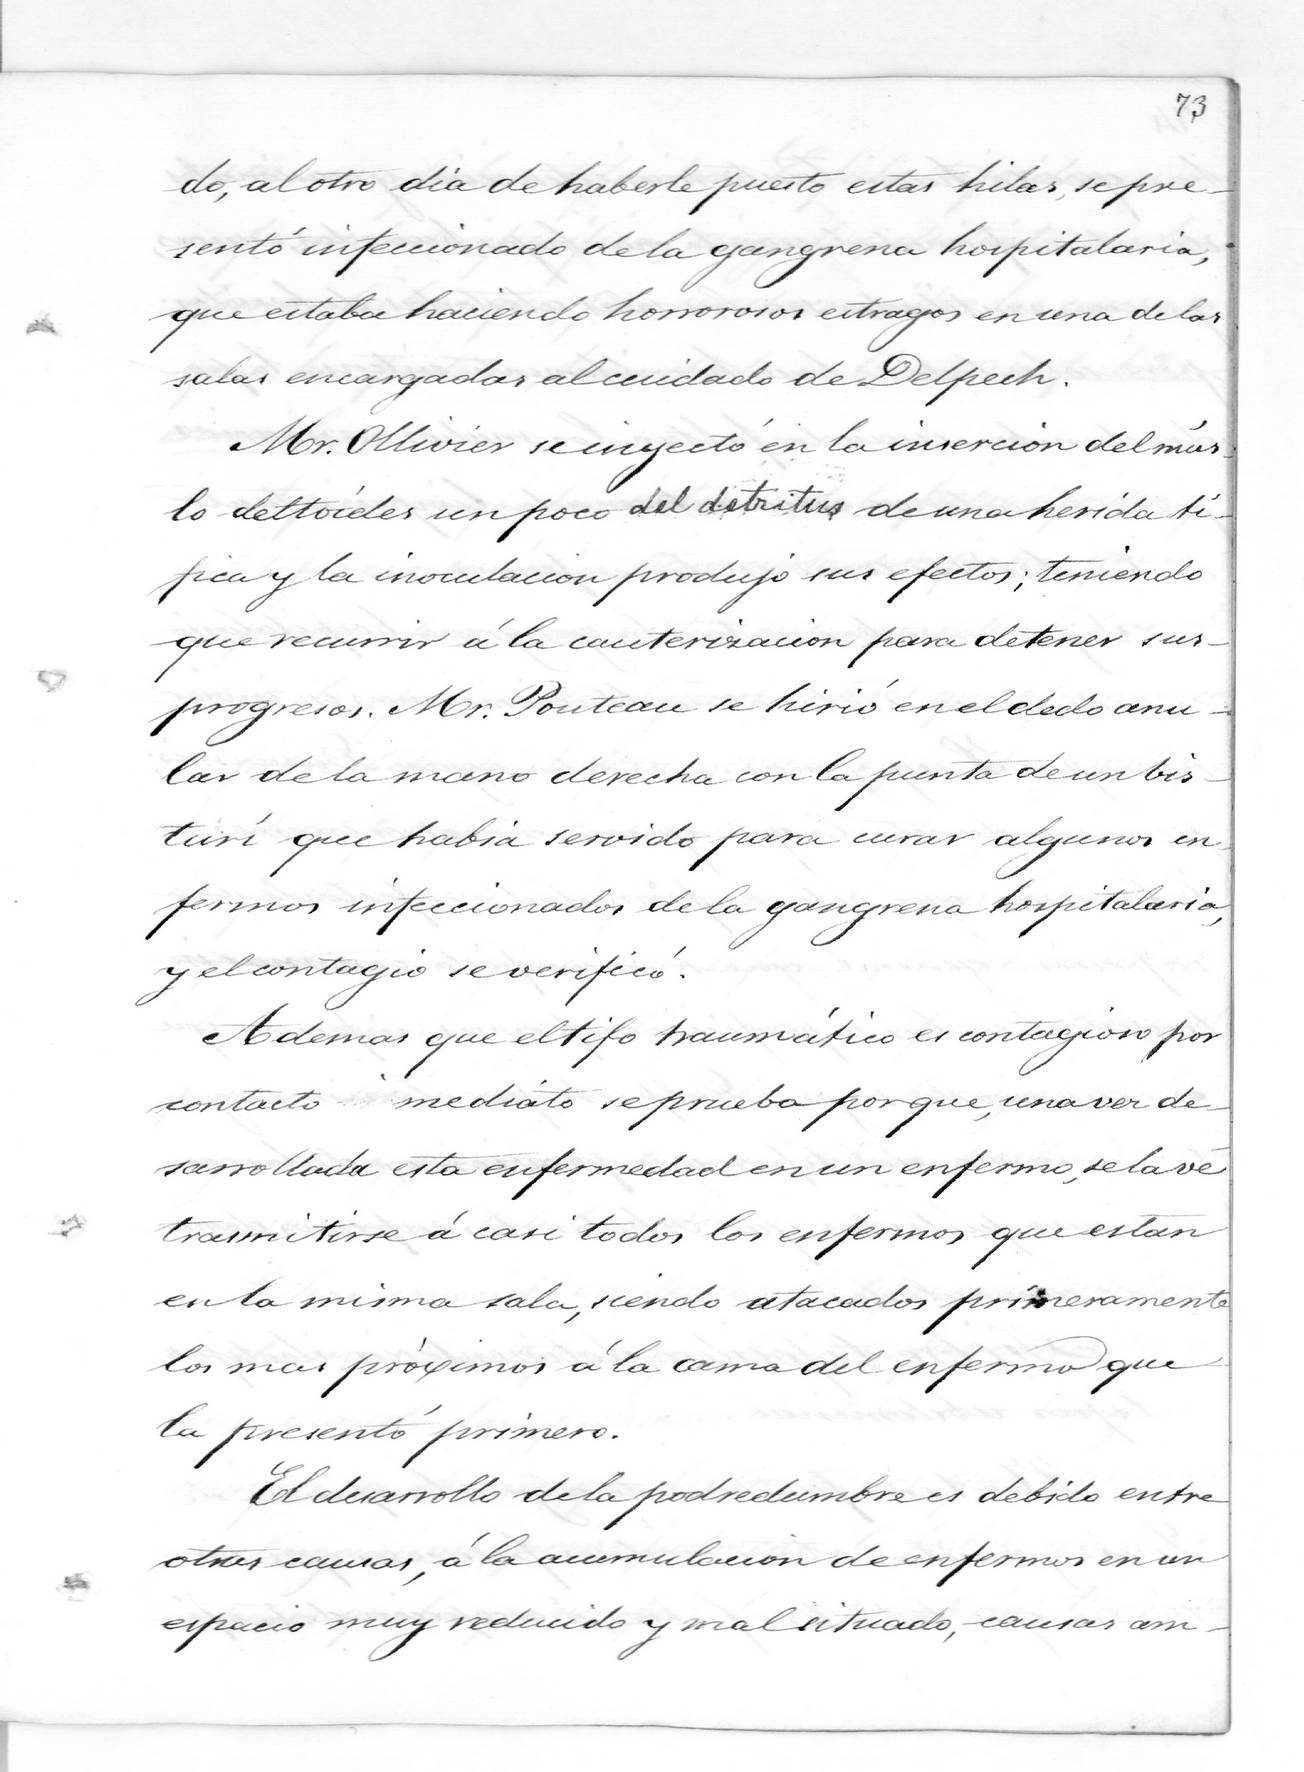 73
do, al otro dia de haberle puesto estas hilas, se pre-
sentó infeccionado de la gangrena hospitalaria,
que estaba haciendo horrorosos estragos en una de las
salas encargadas al cuidado de Delpech.
Mr. Ollivier se inyectó en la inserción del mús-
lo deltoídes un poco del detritus de una herida tí-
fica y la inoculacion produjo sus efectos; teniendo
que recurrir á la cauterizacion para detener sus-
progresos. Mr. Pouteau se hirió en el dedo anu-
lar de la mano derecha con la punta de un bis-
turí que habia servido para curar algunos en-
fermos infeccionados de la gangrena hospitalaria,
y el contagio se verificó.
Ademas que el tifo traumático es contagioso por
contacto mediáto se prueba porque, una vez de-
sarrollada esta enfermedad en un enfermo, se la vé
trasmitirse á casi todos los enfermos que estan
en la misma sala, siendo atacados primeramente
los mas próximos á la cama del enfermo que
la presentó primero.
El desarrollo de la podredumbre es debido entre
otras causas, á la acumulacion de enfermos en un
espacio muy reducido y mal situado, causas am-